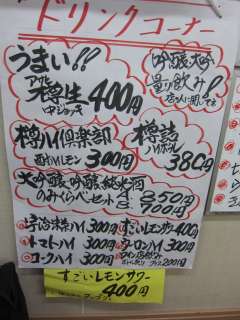 ドリンクコーナー
うまい!!
アサヒ
樽生 400円
中ジョッキ
吟醸大吟
量り飲み!
店員に聞いて
樽ハイ倶楽部
レモン 300円
樽詰
ハイボール
380円
大吟醸 吟醸 純米酒
のみくらべセット
850円
700円
宇治茶ハイ 300円
トマトハイ 300円
コークハイ 300円
すごいレモンサワー 400
ウーロンハイ 300円
すごいレモンサワー
400円